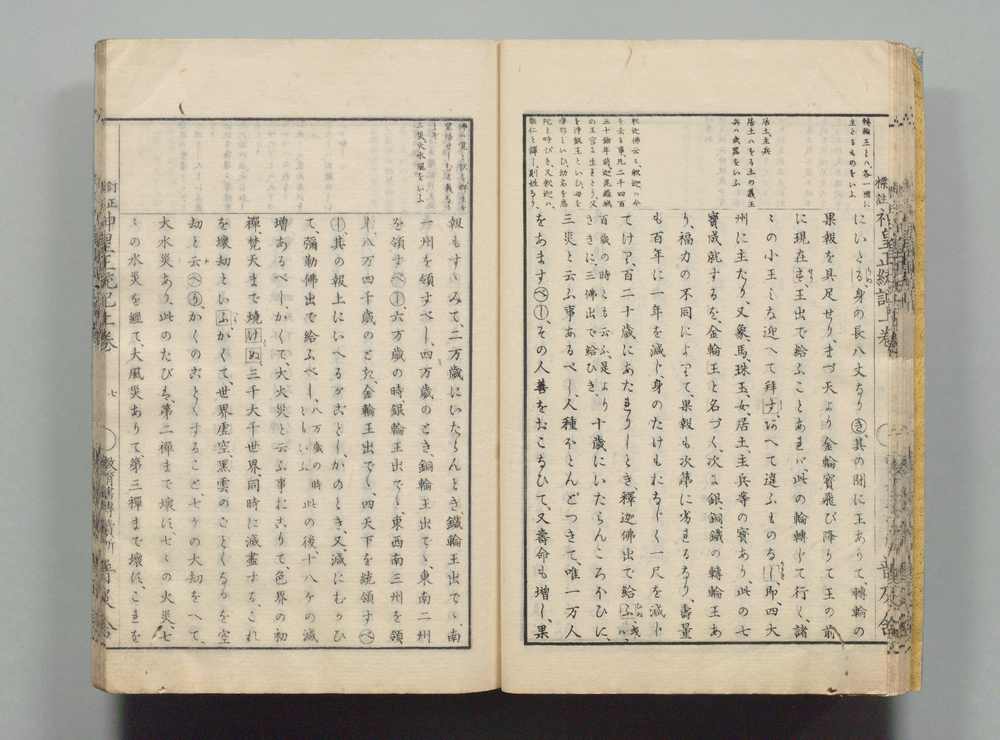 轉輪王とハ、各一國に
主たるものをいふ
居士、主兵
居士ハをる士の義、主
兵ハ武器をいふ
釈迦佛云々、釈迦ハ今
を去る事、凡二千四百
五十餘年前、迦毘羅城
の王宮に生まる、父
を浄飯王といひ、母を
摩耶といひ、幼名を悉
陀と呼びき、又釈迦ハ、
能仁と譯し、則姓なり、
標註神皇正統記上卷
にいたる身の長八丈なり其の間に王ありて、轉輪の
果報を具足せり、まづ天より金輪寶飛び降りて王の前
に現在す王出で給ふことあれバ、此の輪轉じて行く、諸
の小王みな迎へて拜す、あへて違ふものなし、即、四大
州に主たり、又象馬、珠玉、女、居士、主兵等の寶あり、此の七
寶成就するを、金輪王と名づく、次々銀、銅、鐵の轉輪王あ
り、福力の不同によりて、果報も次第に劣れるなり、壽量
も百年に一年を減じ、身のたけもおなじく一尺を減じ
てけり、百二十歳にあたれりしとき、釋迦佛出で給ふ、或ハ、
百歳の時とも云ふ、是より
さきに、三佛出で給ひき、
十歳にいたらんころほひに、
三災と云ふ事あるべし、人種ほとんどつきて、唯一万人
をあます、その人善をおこなひて、又壽命も増し、果
佛ハ覚と訳す
三災火水風をいふ
報もすゝみて、二万歳にいたらんとき、鐵輪王出でゝ、南
一州を領すべし、四万歳のとき、銅輪王出でゝ、東南二州
を領す、六万歳の時銀輪王出でゝ、東西南三州を領
し、八万四千歳のとき、金輪王出でゝ、四天下を統領す
其の報上にいへるがごとし、かのとき、又減にむかひ
て、彌勒佛出で給ふべし、
八万歳の時
ともいふ
此の後十八ケの減
増あるべし、かくて大火災と云ふ事おこりて、色界の初
禪、梵天まで燒けぬ、三千大千世界同時に滅盡する、これ
を壞劫といふ、かくて、世界虚空、黑雲のごとくなるを空
劫と云へり、かくのごとくすること、七ケの大劫をへて、
大水災あり、此のたびハ、第二禪まで壞ス、七々の火災、七
々の水災を經て、大風災ありて、第三禪まで壞ス、これを
訂正神皇正統記上卷
七